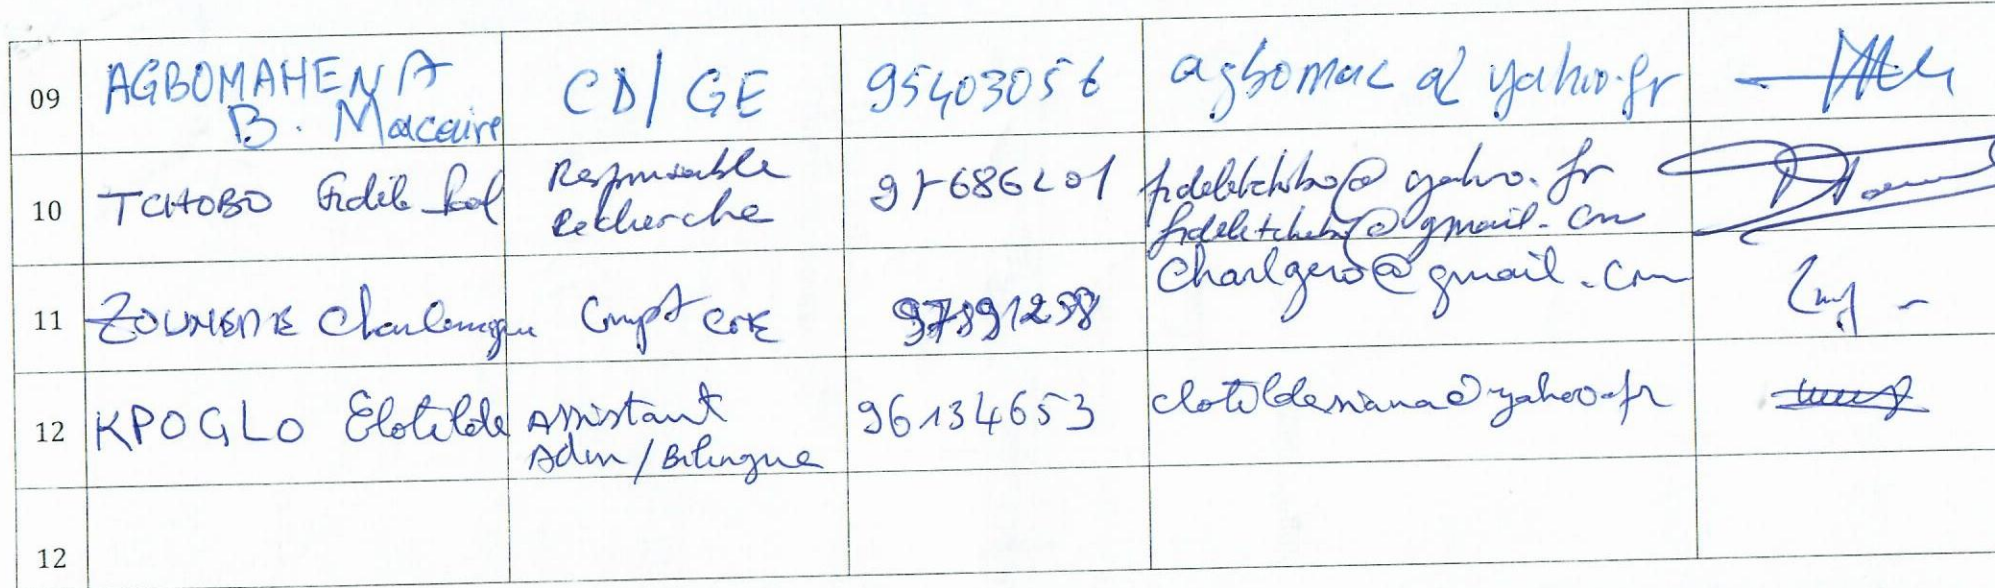 09 AGBOMAHENA B. Macaire CD/GE 95403056 agbomac@yahoo.fr
10 TCHOBO Fidèle Paul Responsable Recherche 97686201 fideletchobo@yahoo.fr
fideletchobo@gmail.com
11 Charlemagne Compt 97391298 Charlgero@gmail.com
12 KPOGLO Clotilde Assistant Adm/Bilingue 96134653 clotildenana@yahoo.fr
12